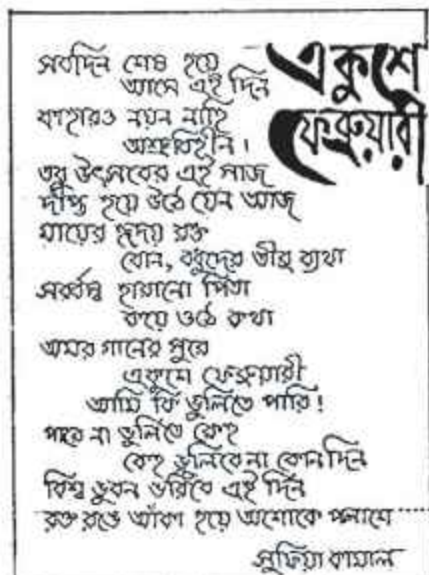 একুশে
ফেব্রুয়ারী
সবদিন শেষ হয়ে
আসে এই দিন
কাহারও নয়ন নাহি
অশ্রুবিহীন।
তবু উৎসবের এই সাজ
দীপ্ত হয়ে উঠে যেন আজ
মায়ের হৃদয় রক্ত
বোন, বধুদের তীব্র ব্যথা
সর্বস্ব হারানো পিতা
কয়ে ওঠে কথা
অমর গানের সুরে
একুশে ফেব্রুয়ারী
আমি কি ভুলিতে পারি!
পারে না ভুলিতে কেহ
কেহ ভুলিবে না কোন দিন
বিশ্ব ভুবন ভরিবে এই দিন
রক্ত রঙে আঁকা হয়ে অশোকে পলাশে
সুফিয়া কামাল